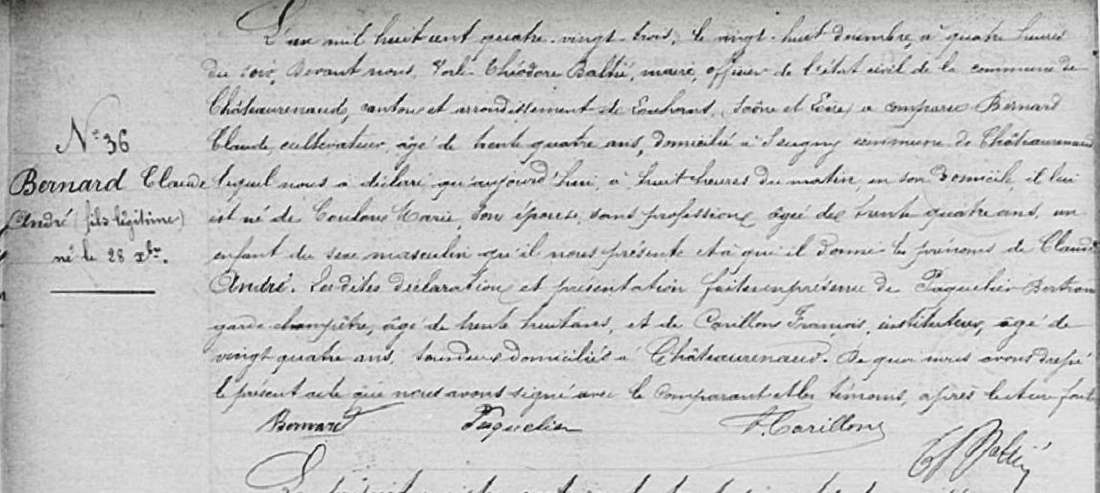 N° 36
Bernard Claude
André (fils légitime)
né le 28 Xbre.
L'an mil huit cent quatre-vingt-trois, le vingt-huit décembre, à quatre heures
du soir, Devant nous, Théodore Balhié, maire, officier de l'état civil de la commune de
Châteaurenaud, canton et arrondissement de Louhans, Saône et Loire, a comparu Bernard
Claude, cultivateur, âgé de trente quatre ans, domicilié à Seugny commune de Châteaurenaud
lequel nous a déclaré qu'aujourd'hui, à huit heures du matin, en son domicile, il lui
est né de Coulon Marie, son épouse, sans profession, âgée de trente quatre ans, un
enfant du sexe masculin qu'il nous présente et à qui il donne les prénoms de Claude
André. Les dites déclaration et présentation faites en présence de Paquelier Bertrand
garde champêtre, âgé de trente huit ans, et de Carillon François, instituteur, âgé de
vingt quatre ans, tous deux domiciliés à Châteaurenaud. De quoi nous avons dressé
le présent acte que nous avons signé avec le comparant et les témoins, après lecture faite
Bernard Paquelier F. Carillon
Balhié